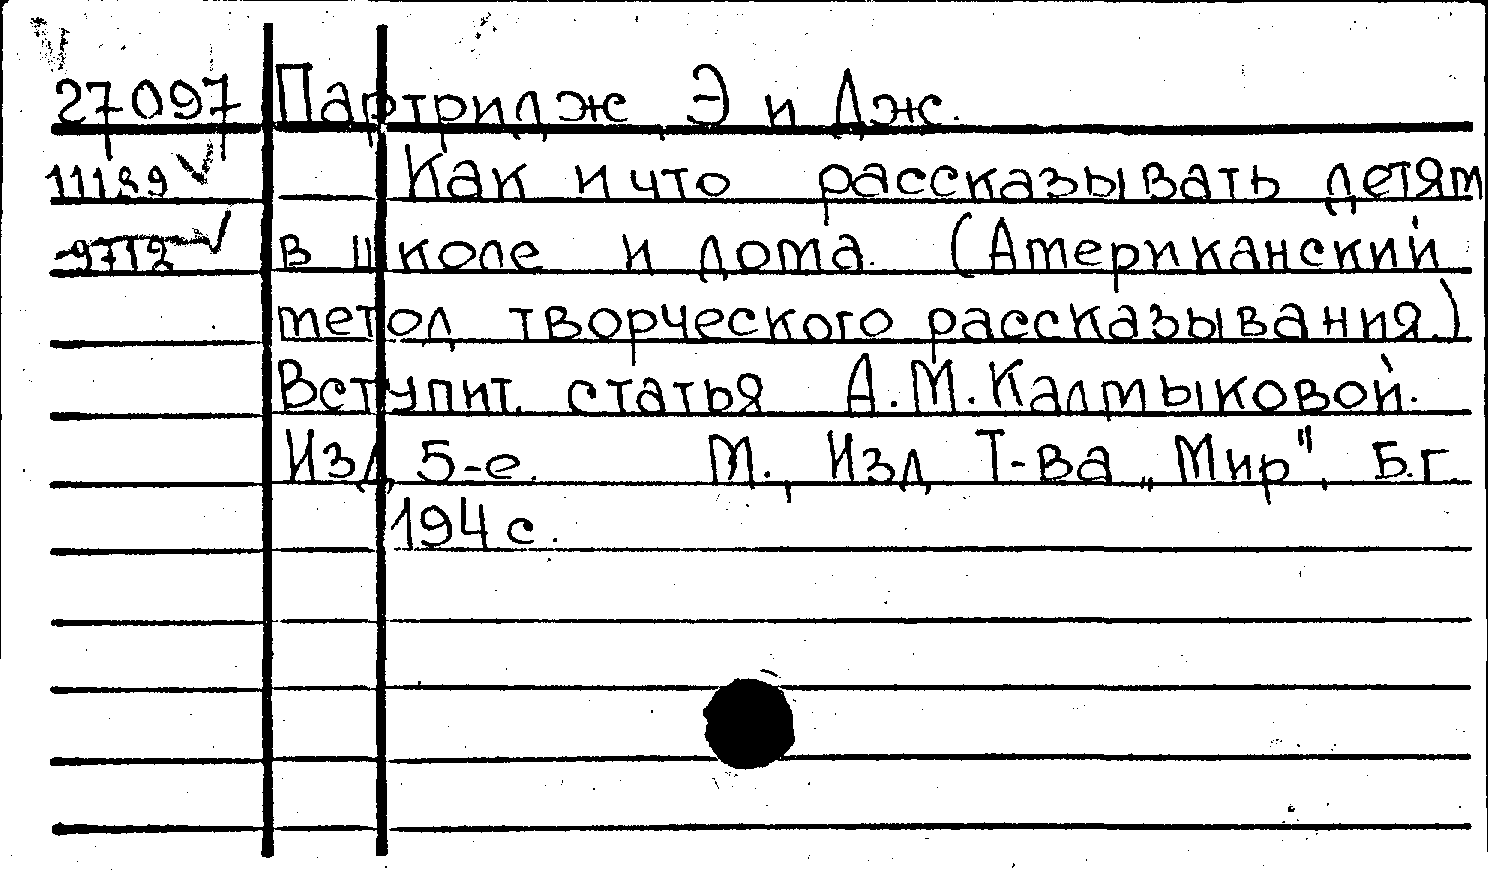 27097 Партридж, Э и Дж.
11189 Как и что рассказывать детям
9712 в школе и дома. (Американский
метод творческого рассказывания.)
Вступит. статья А.М.Калмыковой.
Изд, 5-е. М., Изд, Т-ва „Мир", Б.г.
194 с.